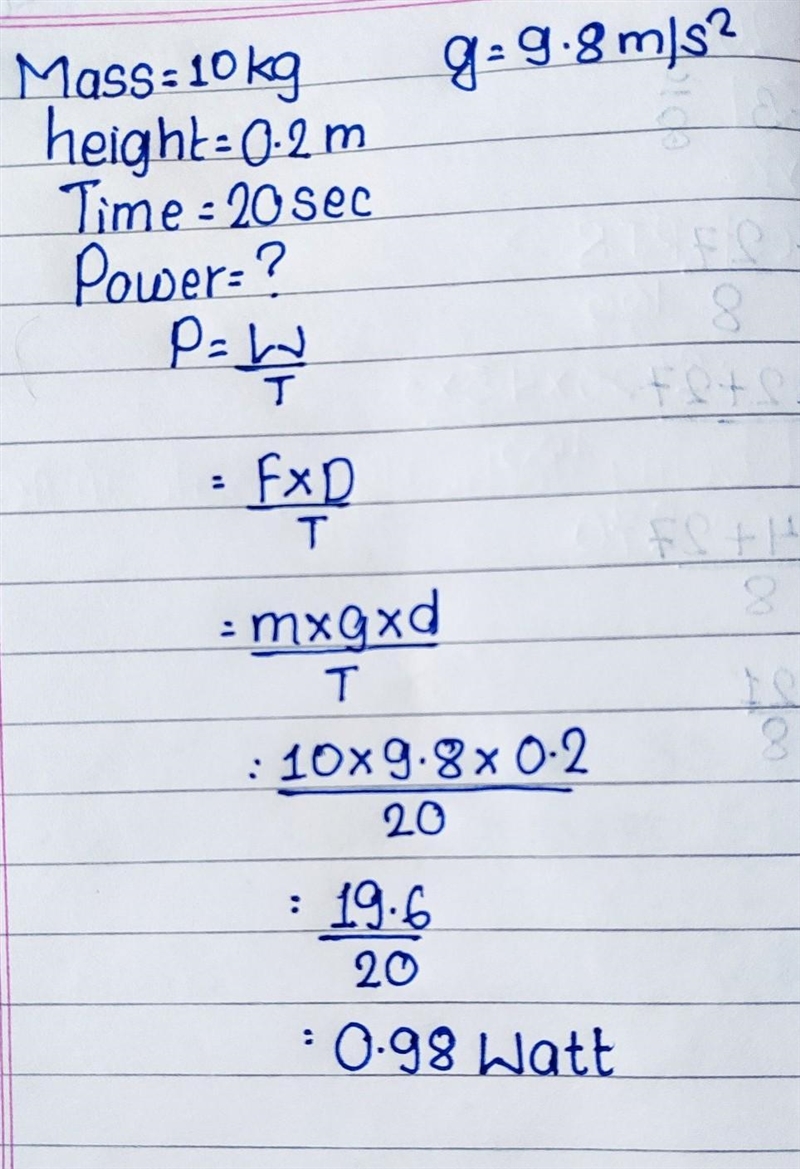 Mass=10kg g=9.8m/s²
height=0.2m
Time=20sec
Power=?
P=W/T
=F×D/T
=m×g×d/T
:10×9.8×0.2/20
:19.6/20
:0.98 Watt